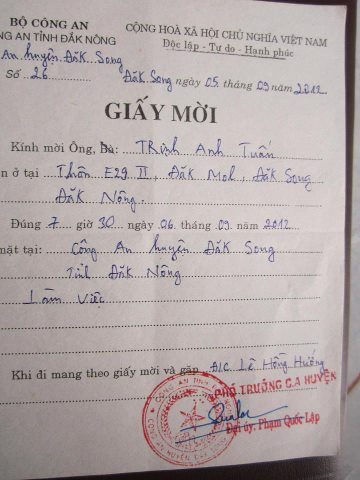 BỘ CÔNG AN CỘNG HOÀ XÃ HỘI CHỦ NGHĨA VIỆT NAM
NG AN TỈNH ĐẮK NÔNG Độc lập - Tự do - Hạnh phúc
An huyện Đăk Song
Số 26 Đăk Song ngày 05 tháng 09 năm 2012
GIẤY MỜI
Kính mời Ông, Bà: Trịnh Anh Tuấn
n ở tại : Thôn E29 II, Đăk Mol, Đăk Song
Đăk Nông.
Đúng 7 giờ 30 ngày 06 tháng 09 năm 2012
mặt tại: Công An huyện Đăk Song
Tỉnh Đăk Nông
Làm việc
Khi đi mang theo giấy mời và gặp Đ/C Lê Hồng Hưởng
PHÓ TRƯỞNG C.A HUYỆN
Đại úy: Phạm Quốc Lập